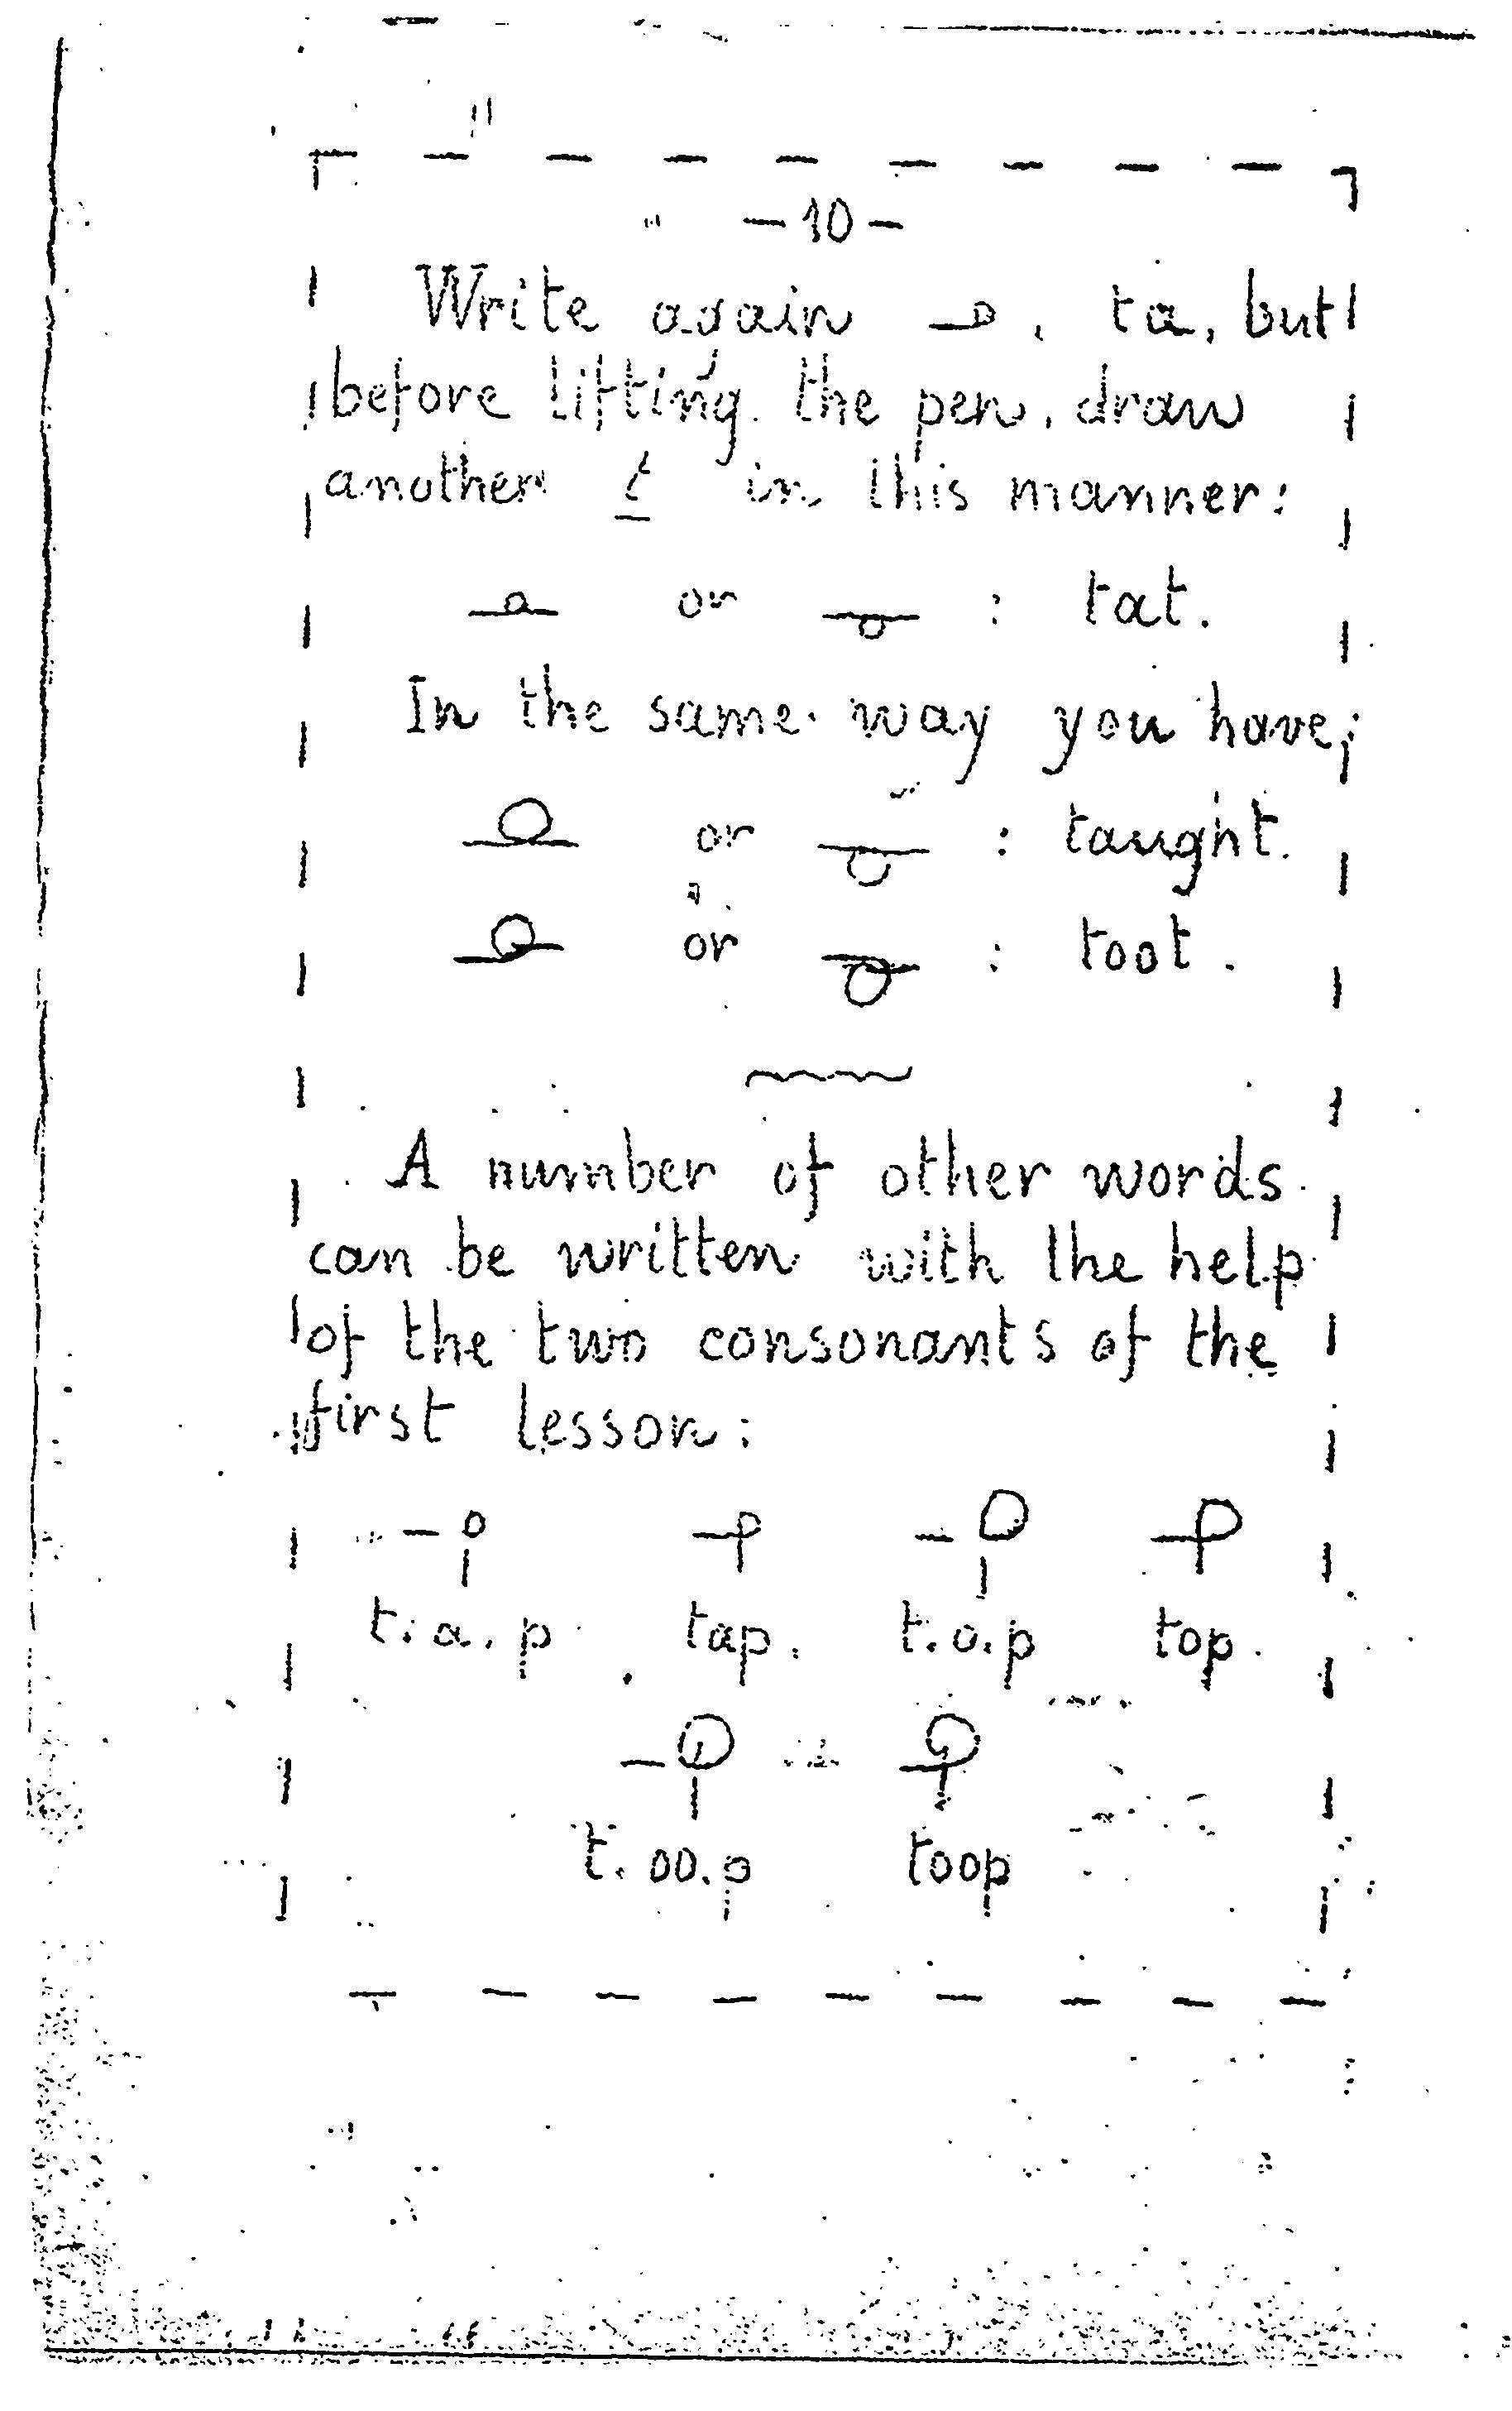 -10-
Write again , ta, but
before lifting the pen, draw
another t in this manner:
or : tat.
In the same way you have;
or : taught.
or : toot.
A number of other words
can be written with the help
of the two consonants of the
first lesson:
t. a. p tap. t. o. p top.
t. oo. p toop